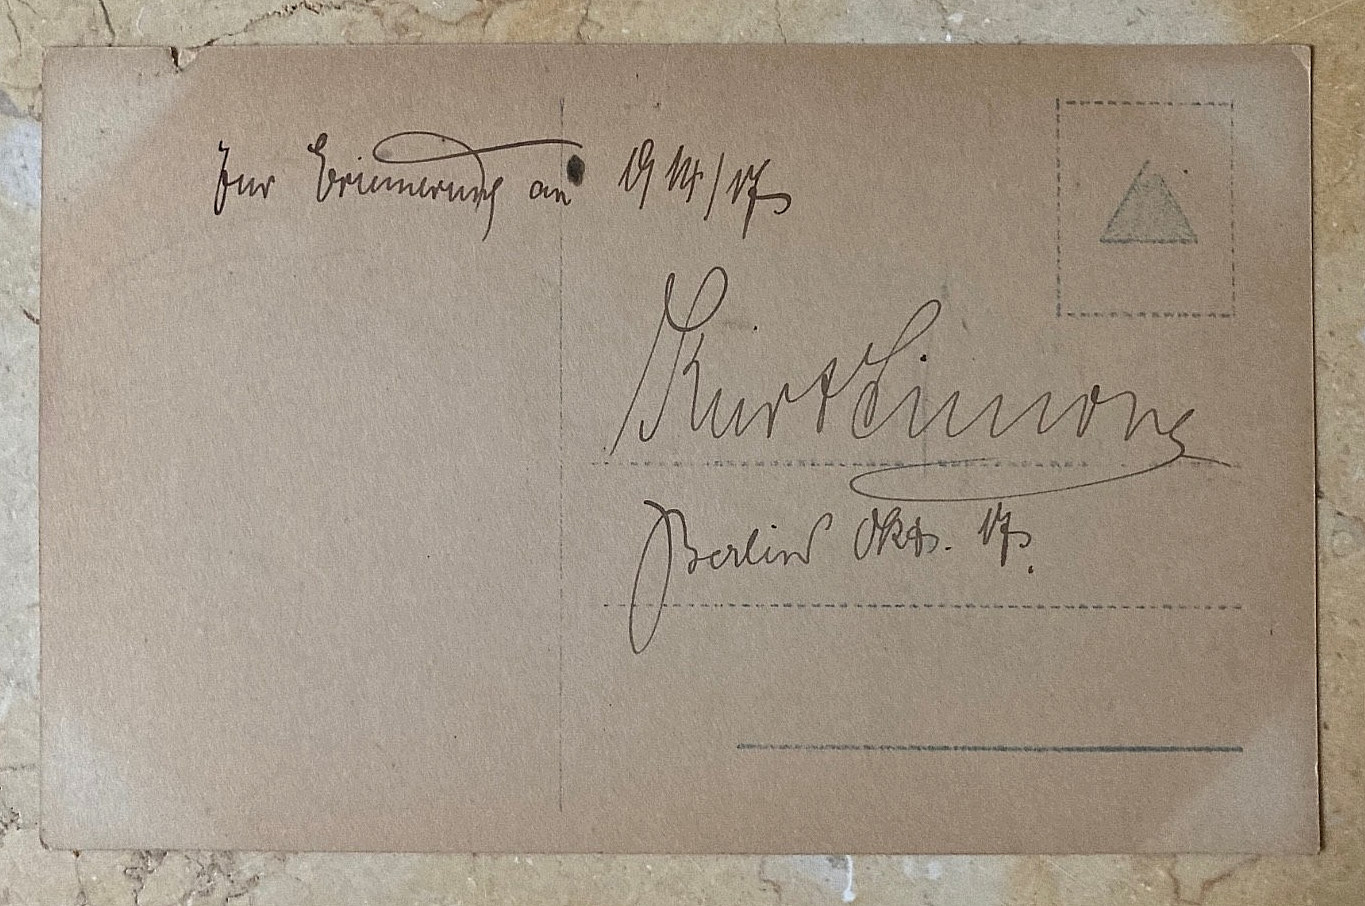 Zur Erinnerung an 1914/17
Kurt Simons
Berlin Okt. 17.